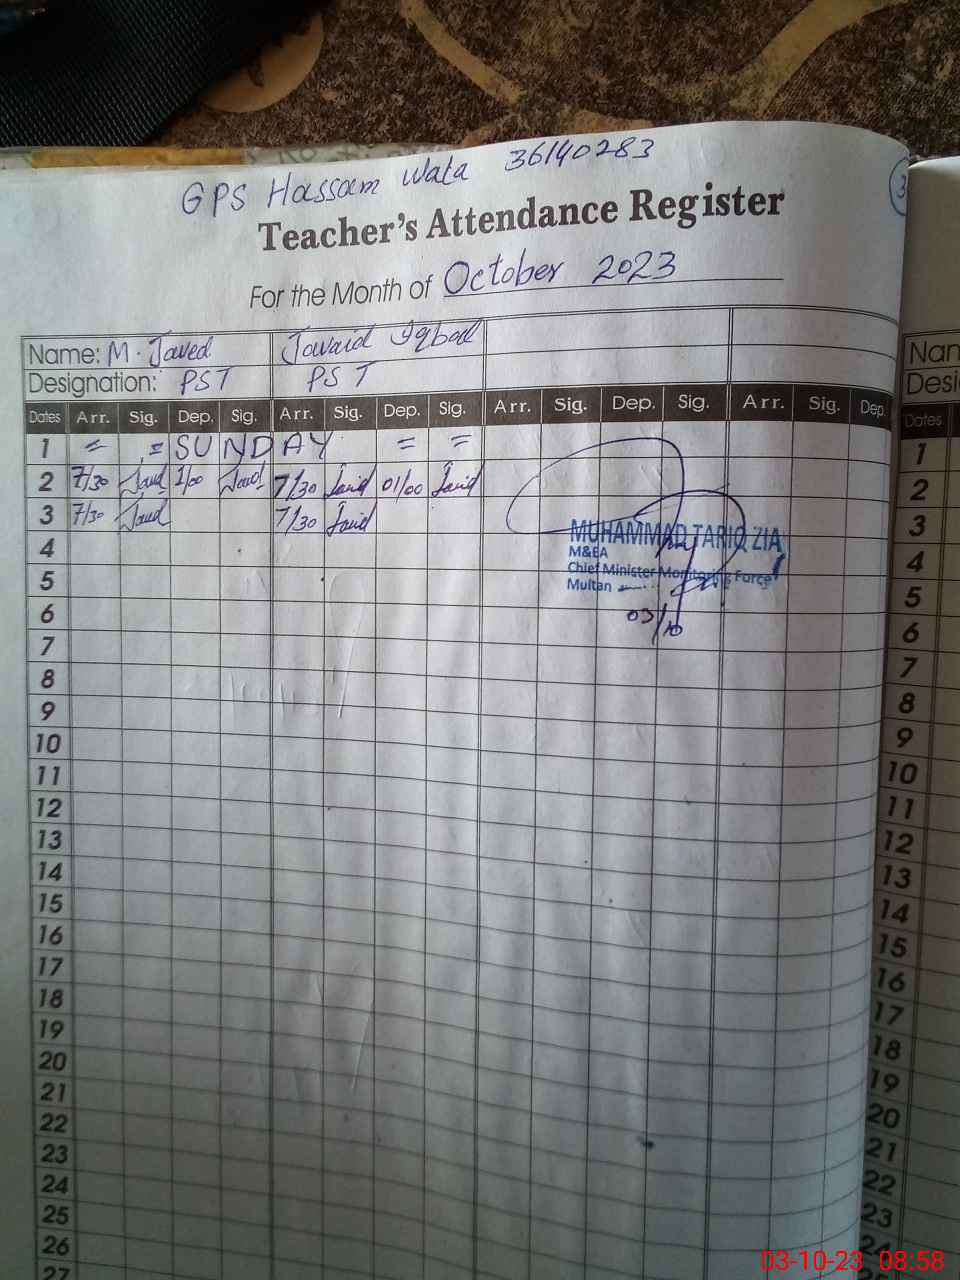 GPS Hassam Wala 36140283
3
Teacher's Attendance Register
For the Month of October 2023
Name: M. Javed Javaid Iqbal
Designation: PST PST
Dates Arr. Sig. Dep. Sig. Arr. Sig. Dep. Sig. Arr. Sig. Dep. Sig. Arr. Sig. Dep.
1 = = SUNDAY = =
2 7/30 Javed 1/00 Javed 7/30 Javid 01/00 Javid
3 7/30 Javed 7/30 Javid
MUHAMMAD TARIQ ZIA
M&EA
Chief Minister Monitoring Force
Multan
03/10
4
5
6
7
8
9
10
11
12
13
14
15
16
17
18
19
20
21
22
23
24
25
26
27
Nam
Desi
Dates
1
2
3
4
5
6
7
8
9
10
11
12
13
14
15
16
17
18
19
20
21
22
23
24
03-10-23 08:58